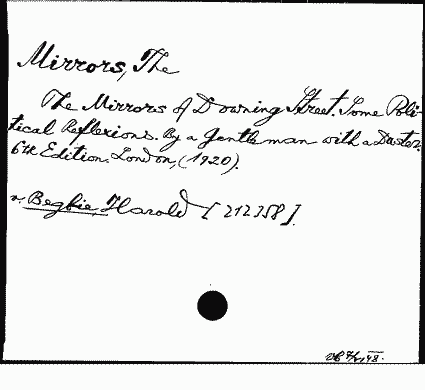 Mirrors, The
The Mirrors of Downing Street. Some Poli-
tical Reflexions. By a Gentleman with a Duster.
6th Edition. London, (1920).
v. Begbie, Harold [212358].